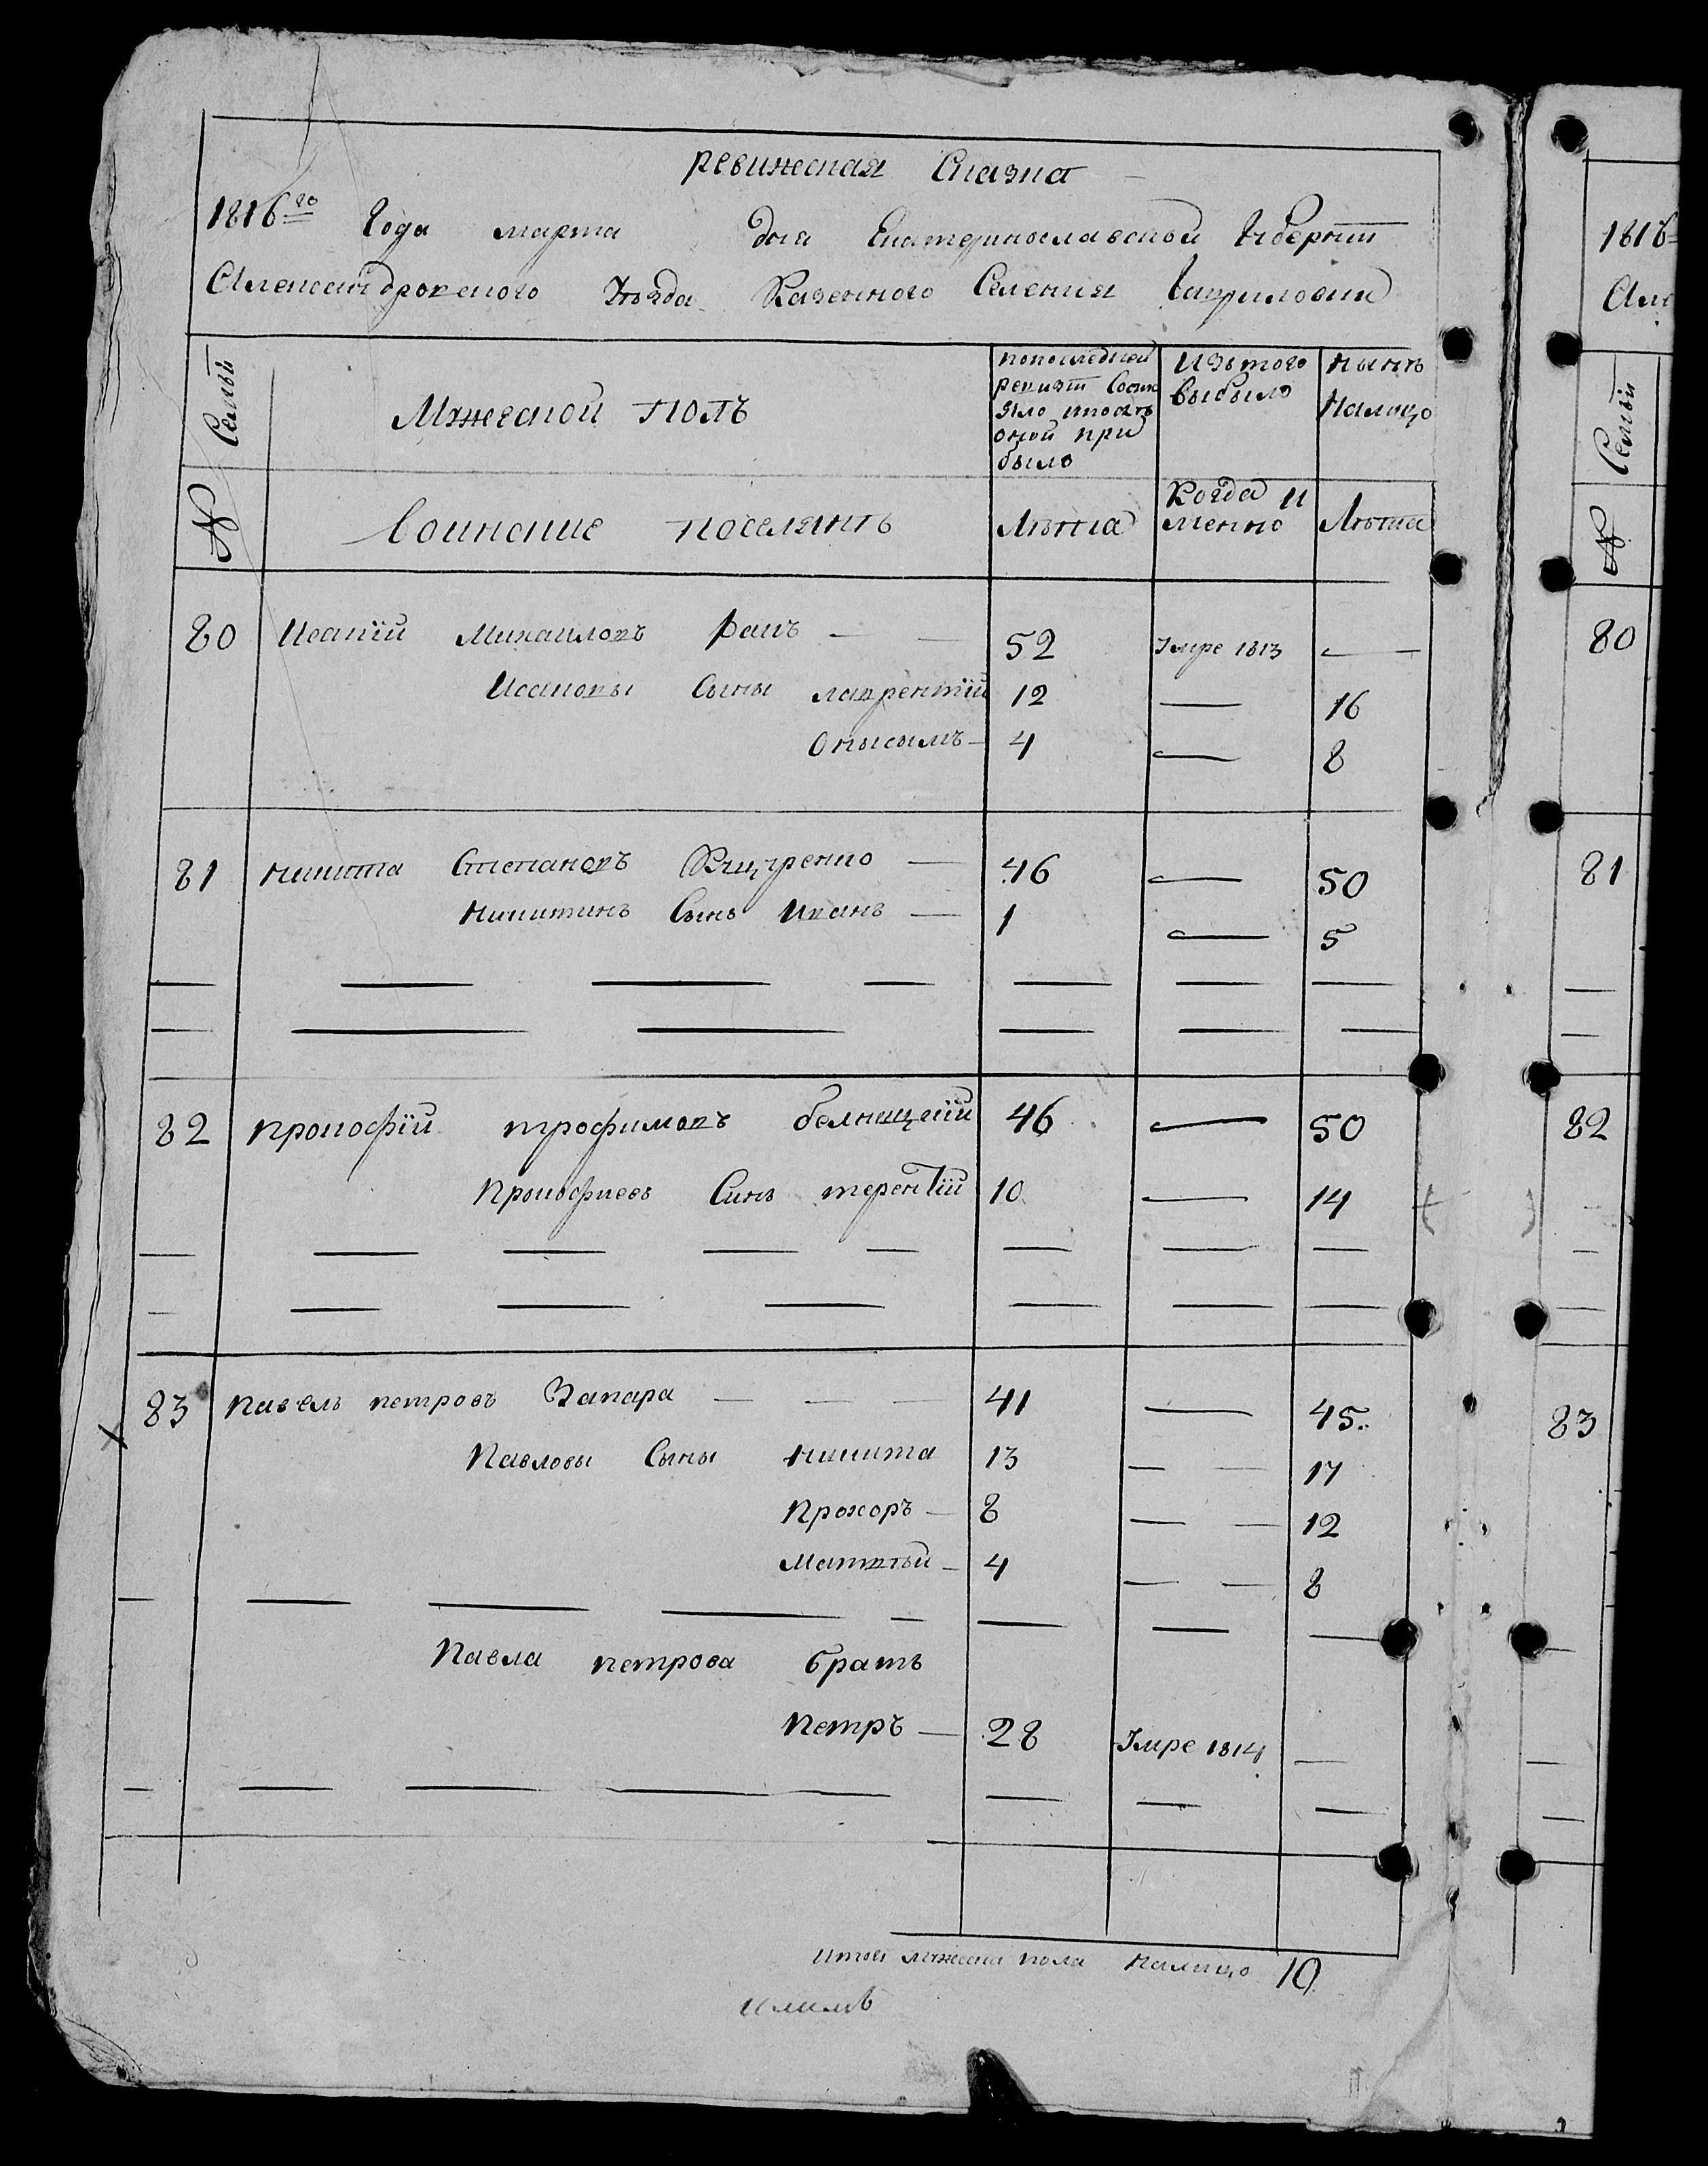 ревижская Сказка
1816го Года марта дня Екатеринославской Губернии
Александровского Уезда Казенного Селения Гавриловки
Семьи
Мужеской полъ
попоследней ревизіи Состояло ипосле оной прибыло
Изътого выбыло
Ныне Налицо
№
Воинские поселяне
Лѣта
Когда И менно
Лѣта
80 Исакій Михаиловъ Рацъ — — 52 Умре 1813 —
Исаковы Сыны лаврентій 12 — 16
Онысымъ — 4 — 8
81 Никита Степановъ — 46 — 50
Никитинъ Сынъ Иванъ — 1 — 5
82 Прокофій трофимовъ 46 — 50
Прокофиевъ Сынъ терентій 10 — 14
83 Павелъ петровъ Запара — — — 41 — 45.
Павловы Сыны Никита 13 — — 17
Прохоръ — 8 — — 12
Матвѣй — 4 — — 8
Павла петрова братъ
Петръ — 28 Умре 1814 —
Итого мужеска пола Налицо 10
1816
Але
Семьи
№
80
81
82
83